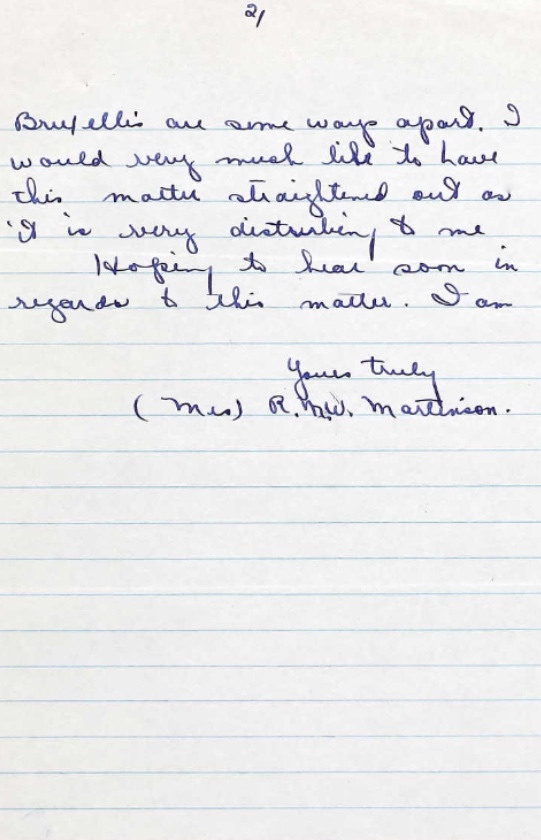 2/
Bruxellis are some ways apart. I
would very much like to have
this matter straightened out as
it is very disturbing to me
Hoping to hear soon in
regards to this matter. I am
Yours truly
(Mrs) R.M.W. Martinson.